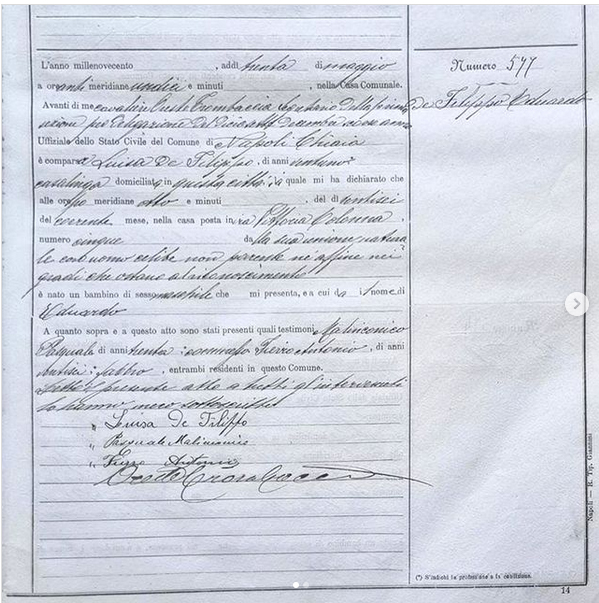 L'anno millenovecento, addì trenta di maggio
a ore anti meridiane undici e minuti, nella Casa Comunale.
Numero 577
De Filippo Eduardo
Avanti di me cavaliere Oreste Segretario della
sezione per delegazione del diciotto dicembre
Uffiziale dello Stato Civile del Comune di Napoli Chiaia
è comparsa Luisa De Filippo, di anni ventuno
casalinga domiciliata in questa città: la quale mi ha dichiarato che
alle ore meridiane otto e minuti, del dì ventisei
del corrente mese, nella casa posta in via Vittoria Colonna
numero cinque da lla sua unione natura
le con uomo celibe non parente nè affine nei
gradi che ostano al riconoscimento
è nato un bambino di sesso maschile che mi presenta, e a cui dà il nome di
Eduardo
A quanto sopra e a questo atto sono stati presenti quali testimoni Malinconico
Pasquale di anni trenta: Fierro Antonio, di anni
fabbro, entrambi residenti in questo Comune.
Letto il presente atto a tutti gl'intervenuti
lo hanno meco sottoscritto
" Luisa De Filippo
" Pasquale Malinconico
" Fierro Antonio
Oreste
Napoli — R. Tip. Giannini
(*) S'indichi la professione o la condizione.
14